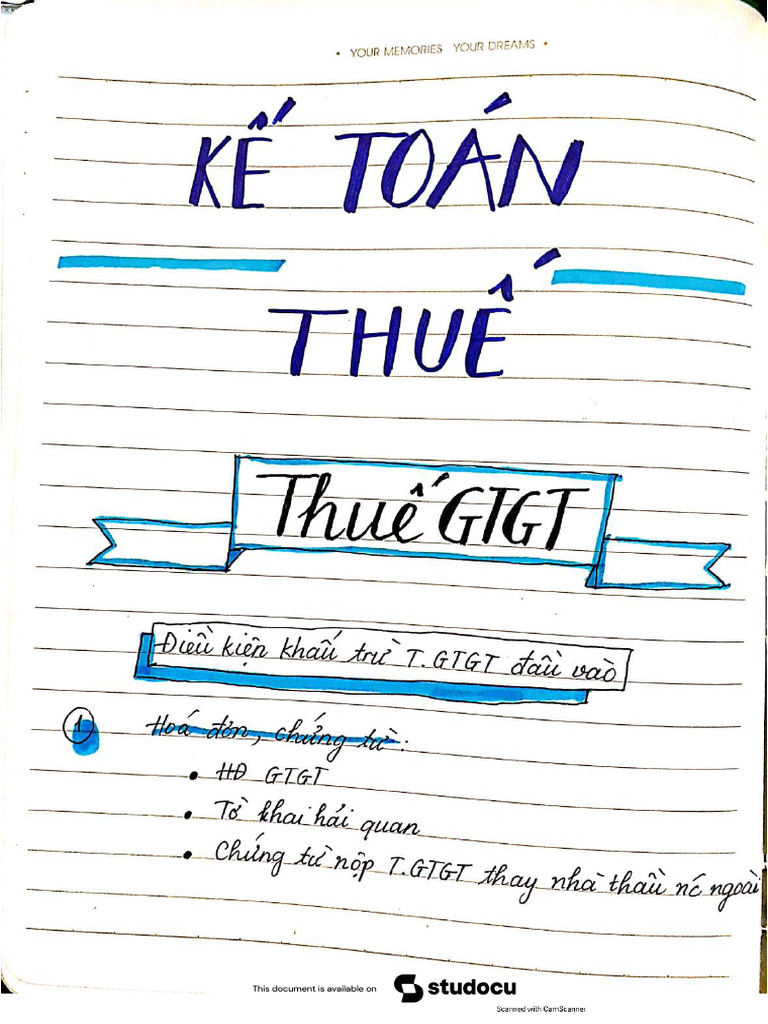 • YOUR MEMORIES YOUR DREAMS •
KẾ TOÁN
THUẾ
Thuế GTGT
Điều kiện khấu trừ T.GTGT đầu vào
1 Hoá đơn, chứng từ:
• HĐ GTGT
• Tờ khai hải quan
• Chứng từ nộp T.GTGT thay nhà thầu nc ngoài
This document is available on studocu
Scanned with CamScanner